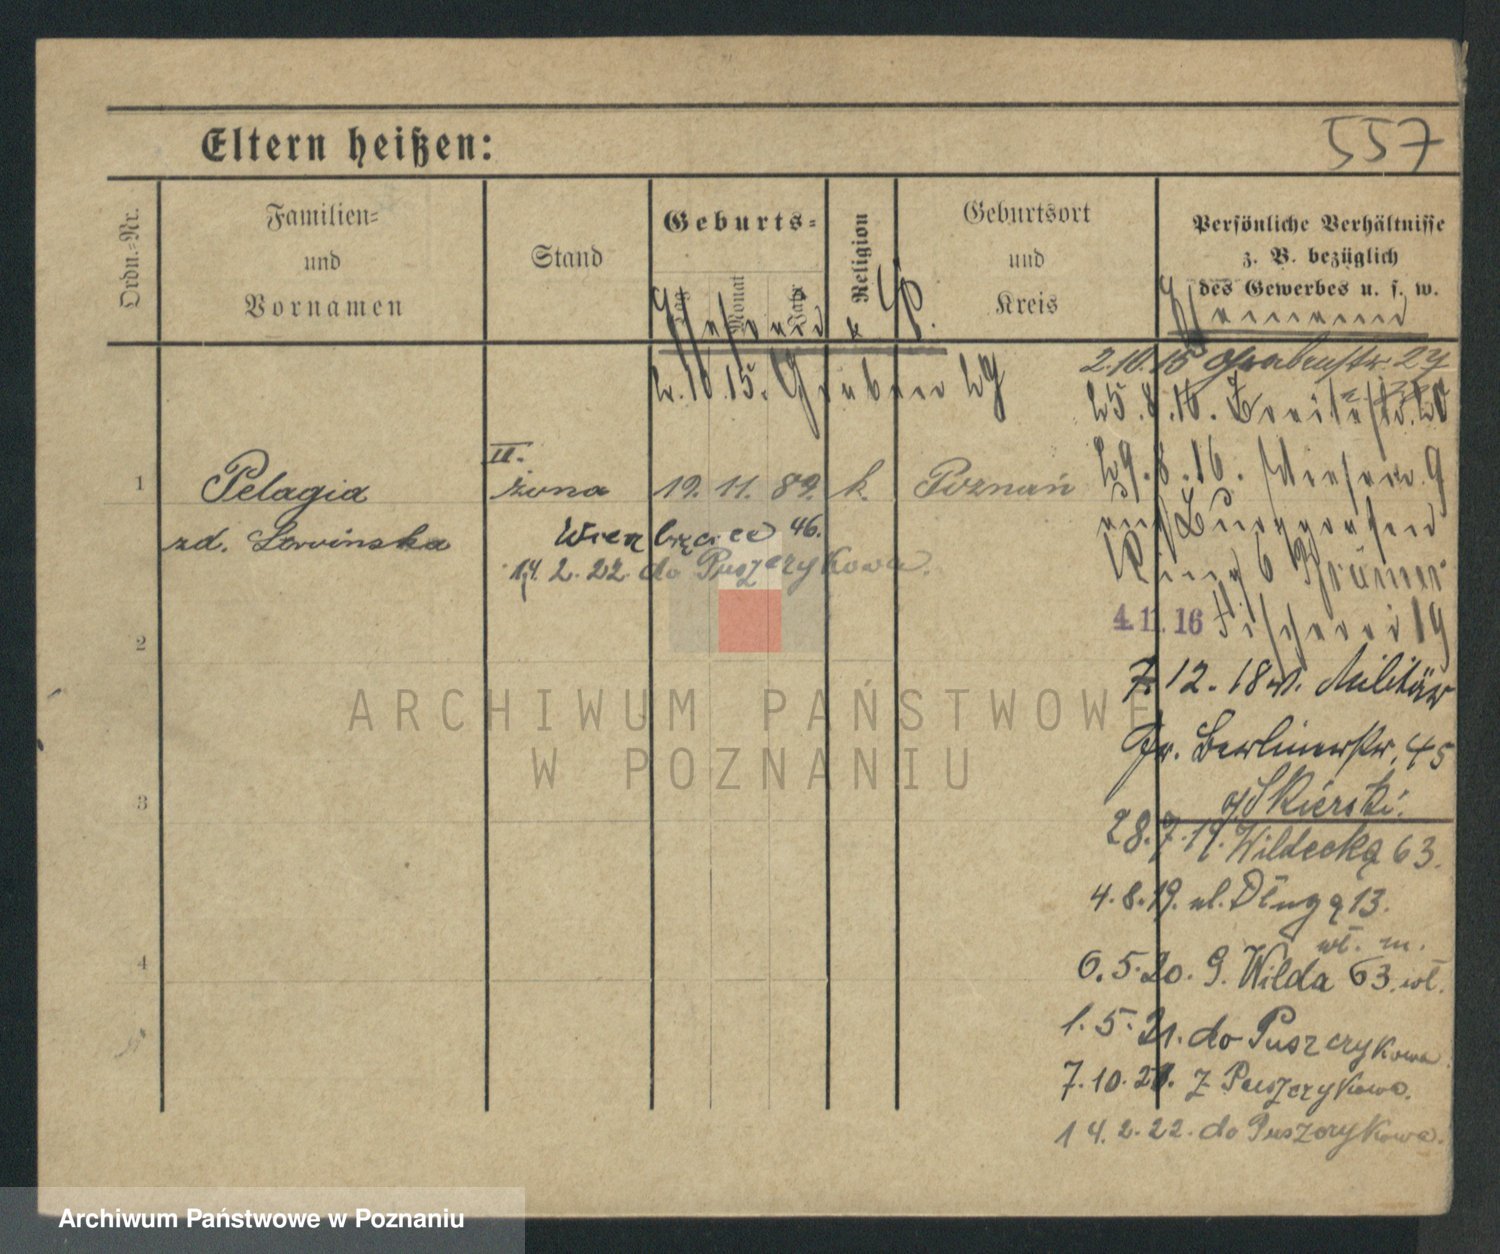 557
Eltern heißen:
Ordn.=Nr.
Familien=
und
Vornamen
Stand
Geburts=
Tag
Monat
Jahr
Religion
Geburtsort
und
Kreis
Persönliche Verhältnisse
z. B. bezüglich
des Gewerbes u. s. w.
2.10.15. Graben 29
2.10.15 Grabenstr. 29
25.8.16. Breitestr. 20
29.8.16. 9
Ring 6
4.11.16 Fischerei 19
7.12.18 v. Militär
Gr. Berlinerstr. 45
b/ Skierski.
28.7.19. Wildecką 63.
4.8.19. ul. Długą 13.
wł. m.
6.5.20. G. Wilda 63. wł.
1.5.21. do Puszczykowa
7.10.21. z Puszczykowa.
14.2.22. do Puszczykowa.
1
Pelagia
II.
żona
19. 11. 89. k. Poznań
zd.
Wierzbięcice 46.
14.2.22. do Puszczykowa.
2
3
4
ARCHIWUM PAŃSTWOWE
W POZNANIU
Archiwum Państwowe w Poznaniu